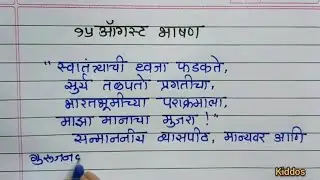 १५ ऑगस्ट भाषण
"स्वातंत्र्याची ध्वजा फडकते,
सुर्य तळपतो प्रगतीचा,
भारतभूमीच्या पराक्रमाला,
माझा मानाचा मुजरा!"
सन्माननीय व्यासपीठ, मान्यवर आणि
गुरुजन
Kiddos